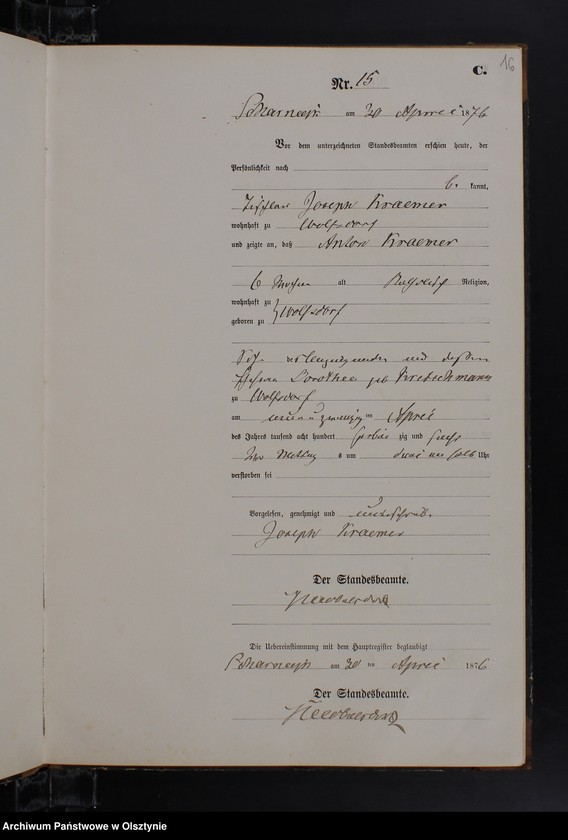 16
C.
Nr. 15
am 30 April 1876
Vor dem unterzeichneten Standesbeamten erschien heute, der
Persönlichkeit nach
be kannt,
Tischler Joseph Kraemer
wohnhaft zu Wolfsdorf
und zeigte an, daß Anton Kraemer
6 Wochen alt Katholisch Religion,
wohnhaft zu
geboren zu Wolfsdorf
Sohn des Anzeigenden und dessen
Ehefrau Dorothea geb Kretschmann
zu Wolfsdorf
am neun u zwanzigten April
des Jahres tausend acht hundert siebenzig und sechs
Nachmittags um halb Uhr
verstorben sei
Vorgelesen, genehmigt und unterschrieben
Joseph Kraemer
Der Standesbeamte.
Die Uebereinstimmung mit dem Hauptregister beglaubigt
am 30 ten April 1876
Der Standesbeamte.
Archiwum Państwowe w Olsztynie